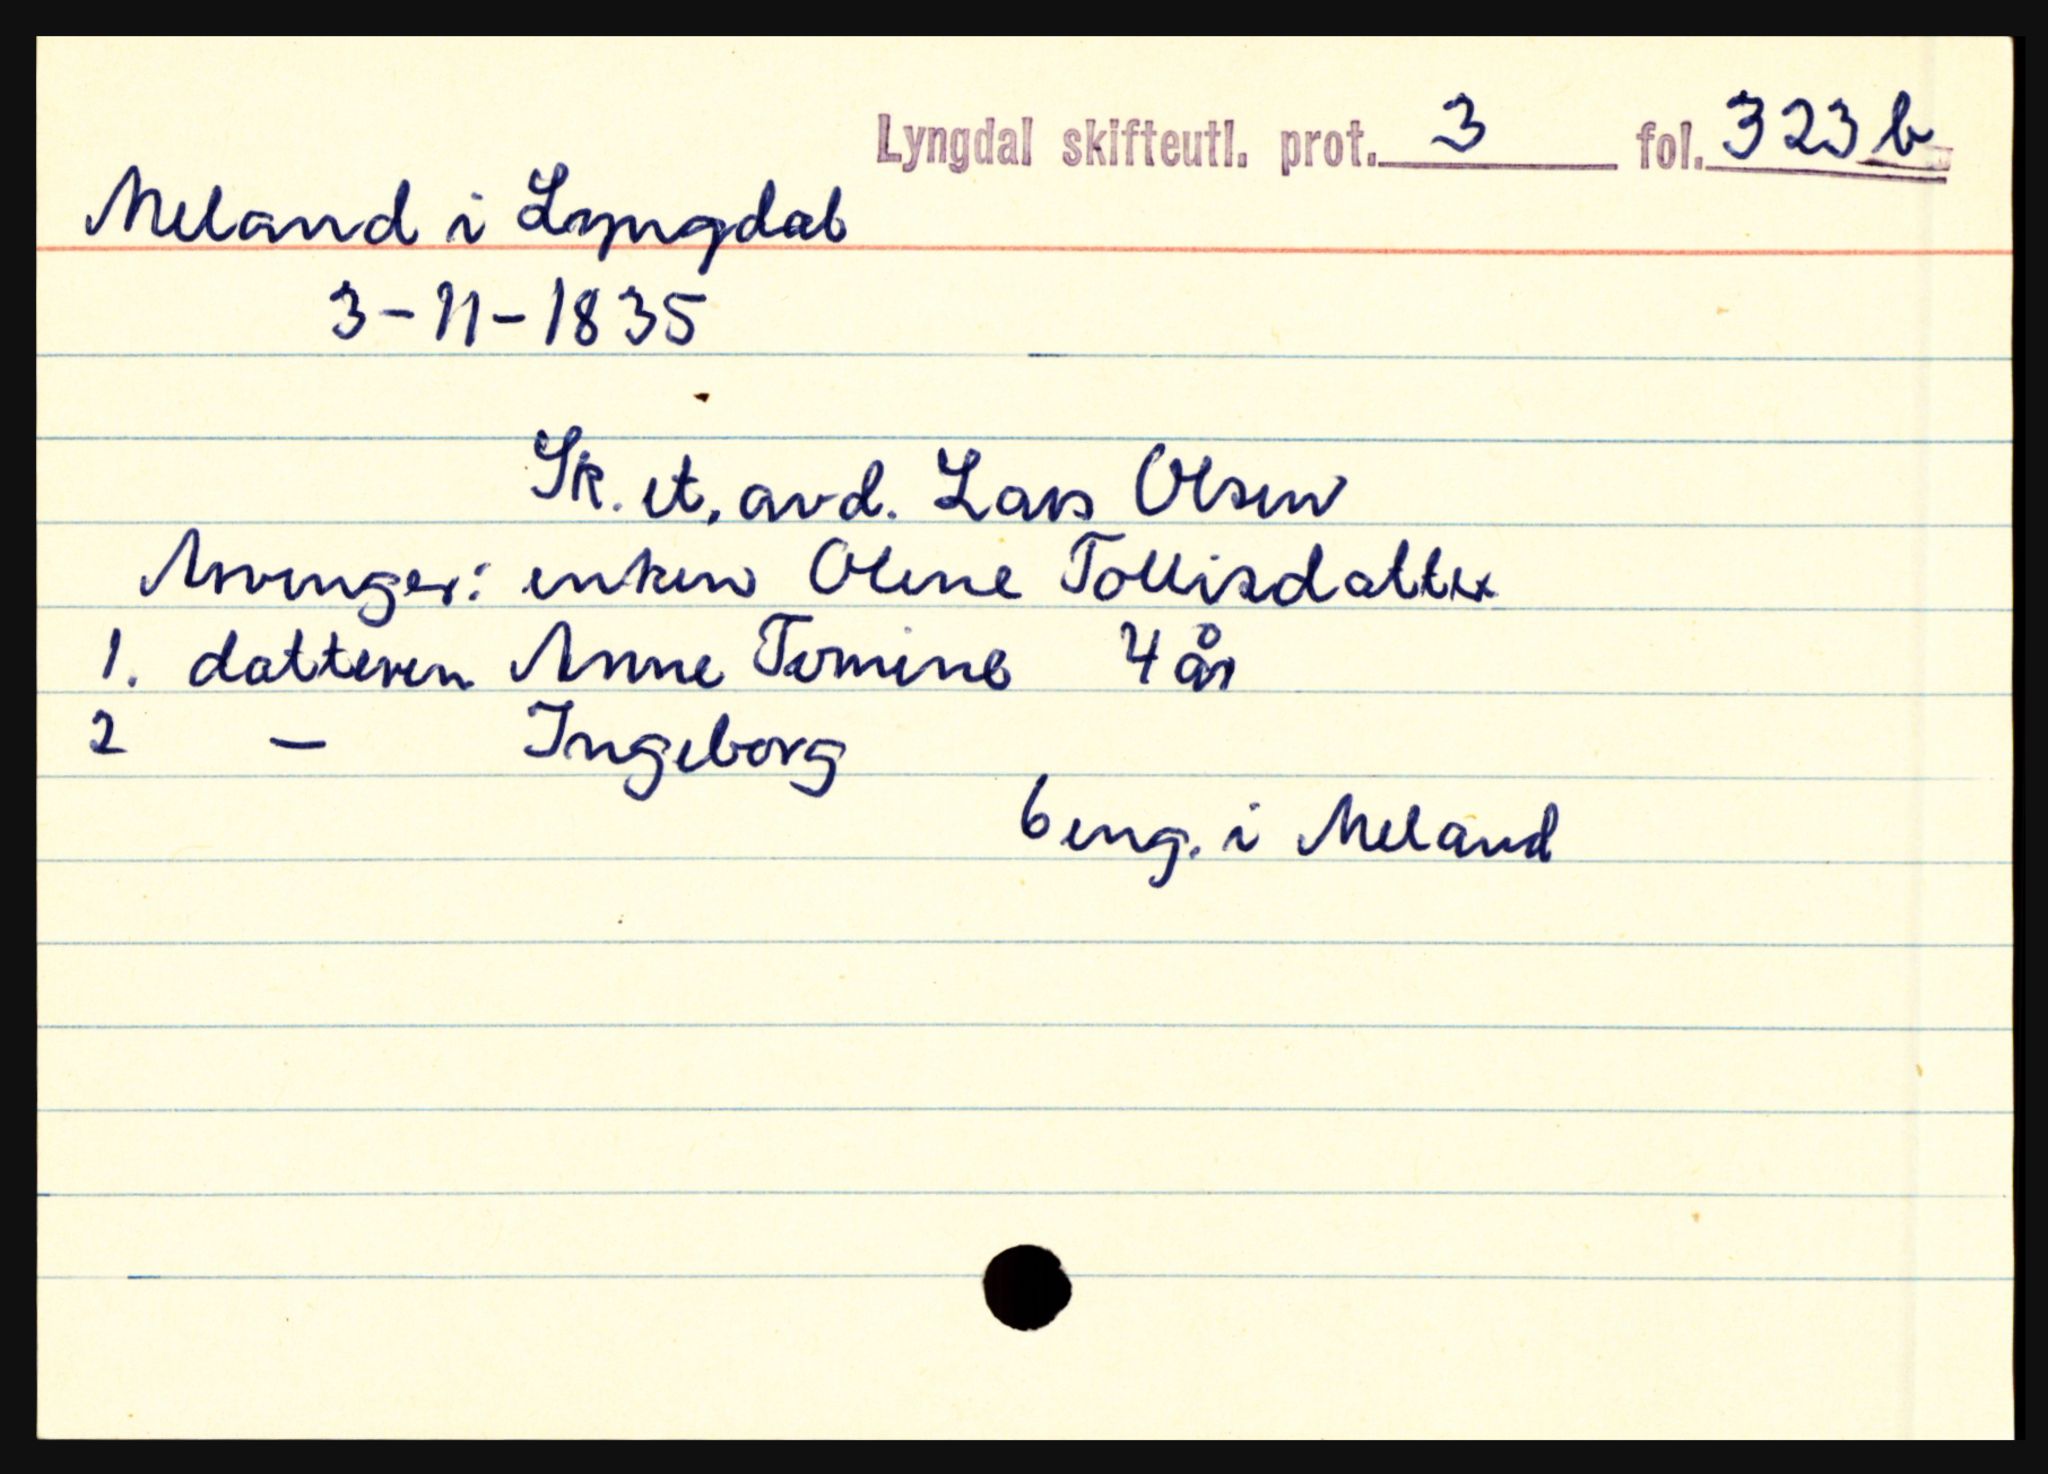 Lyngdal skifteutl. prot. 3 fol. 323 b
Meland i Lyngdal
3-11-1835
Sk. et. avd. Lars Olsen
Arvinger: enken Olene Tollisdatter
1. datteren Anne Tomine 4 år
2 — Ingeborg
6 eng. i Meland